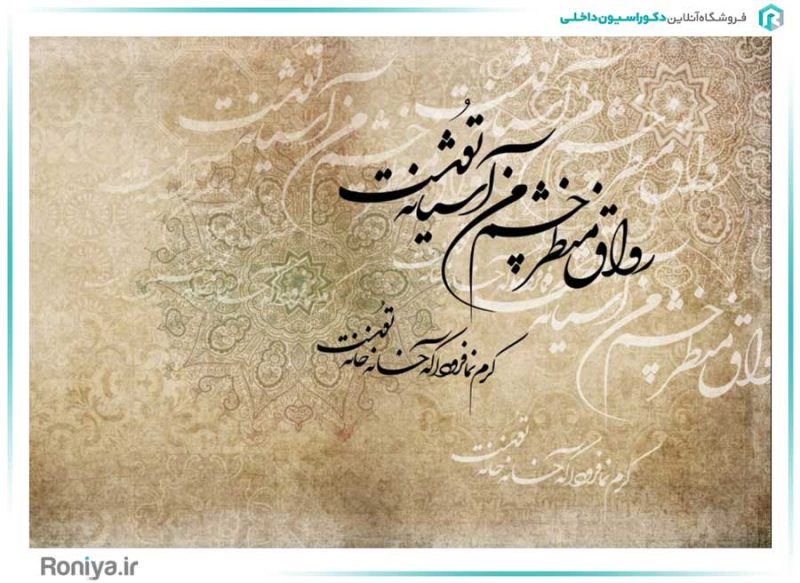 فروشگاه آنلاین دکوراسیون داخلی
رواق منظر چشم من آشیانه توست
کرم نما و فرود آ که خانه خانه توست
رواق منظر چشم من آشیانه توست
کرم نما و فرود آ که خانه خانه توست
Roniya.ir